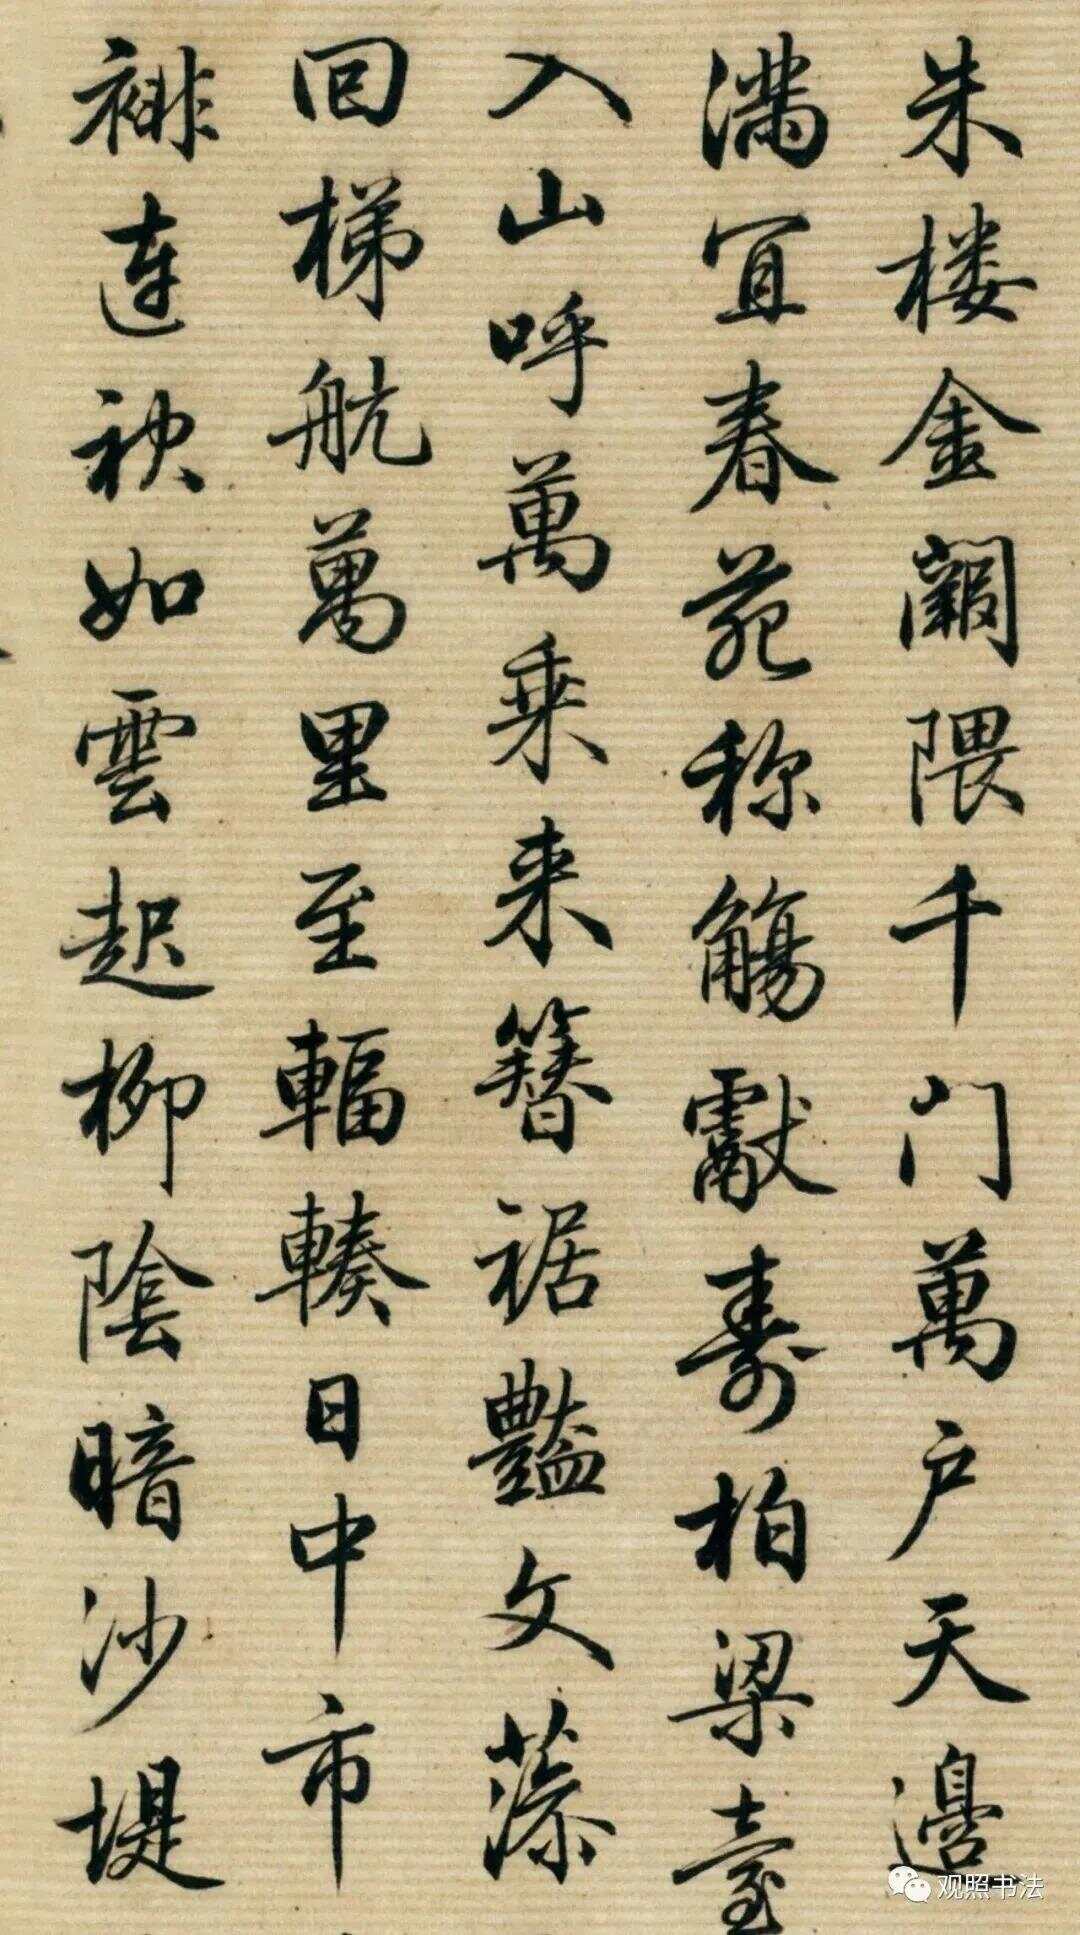 朱楼金阙隈千门萬户天邊
满宜春苑称觴獻壽柏梁臺
入山呼萬乘来簪裾豔文藻
回梯航萬里至輻輳日中市
連袂如雲起柳陰暗沙堤
观照书法